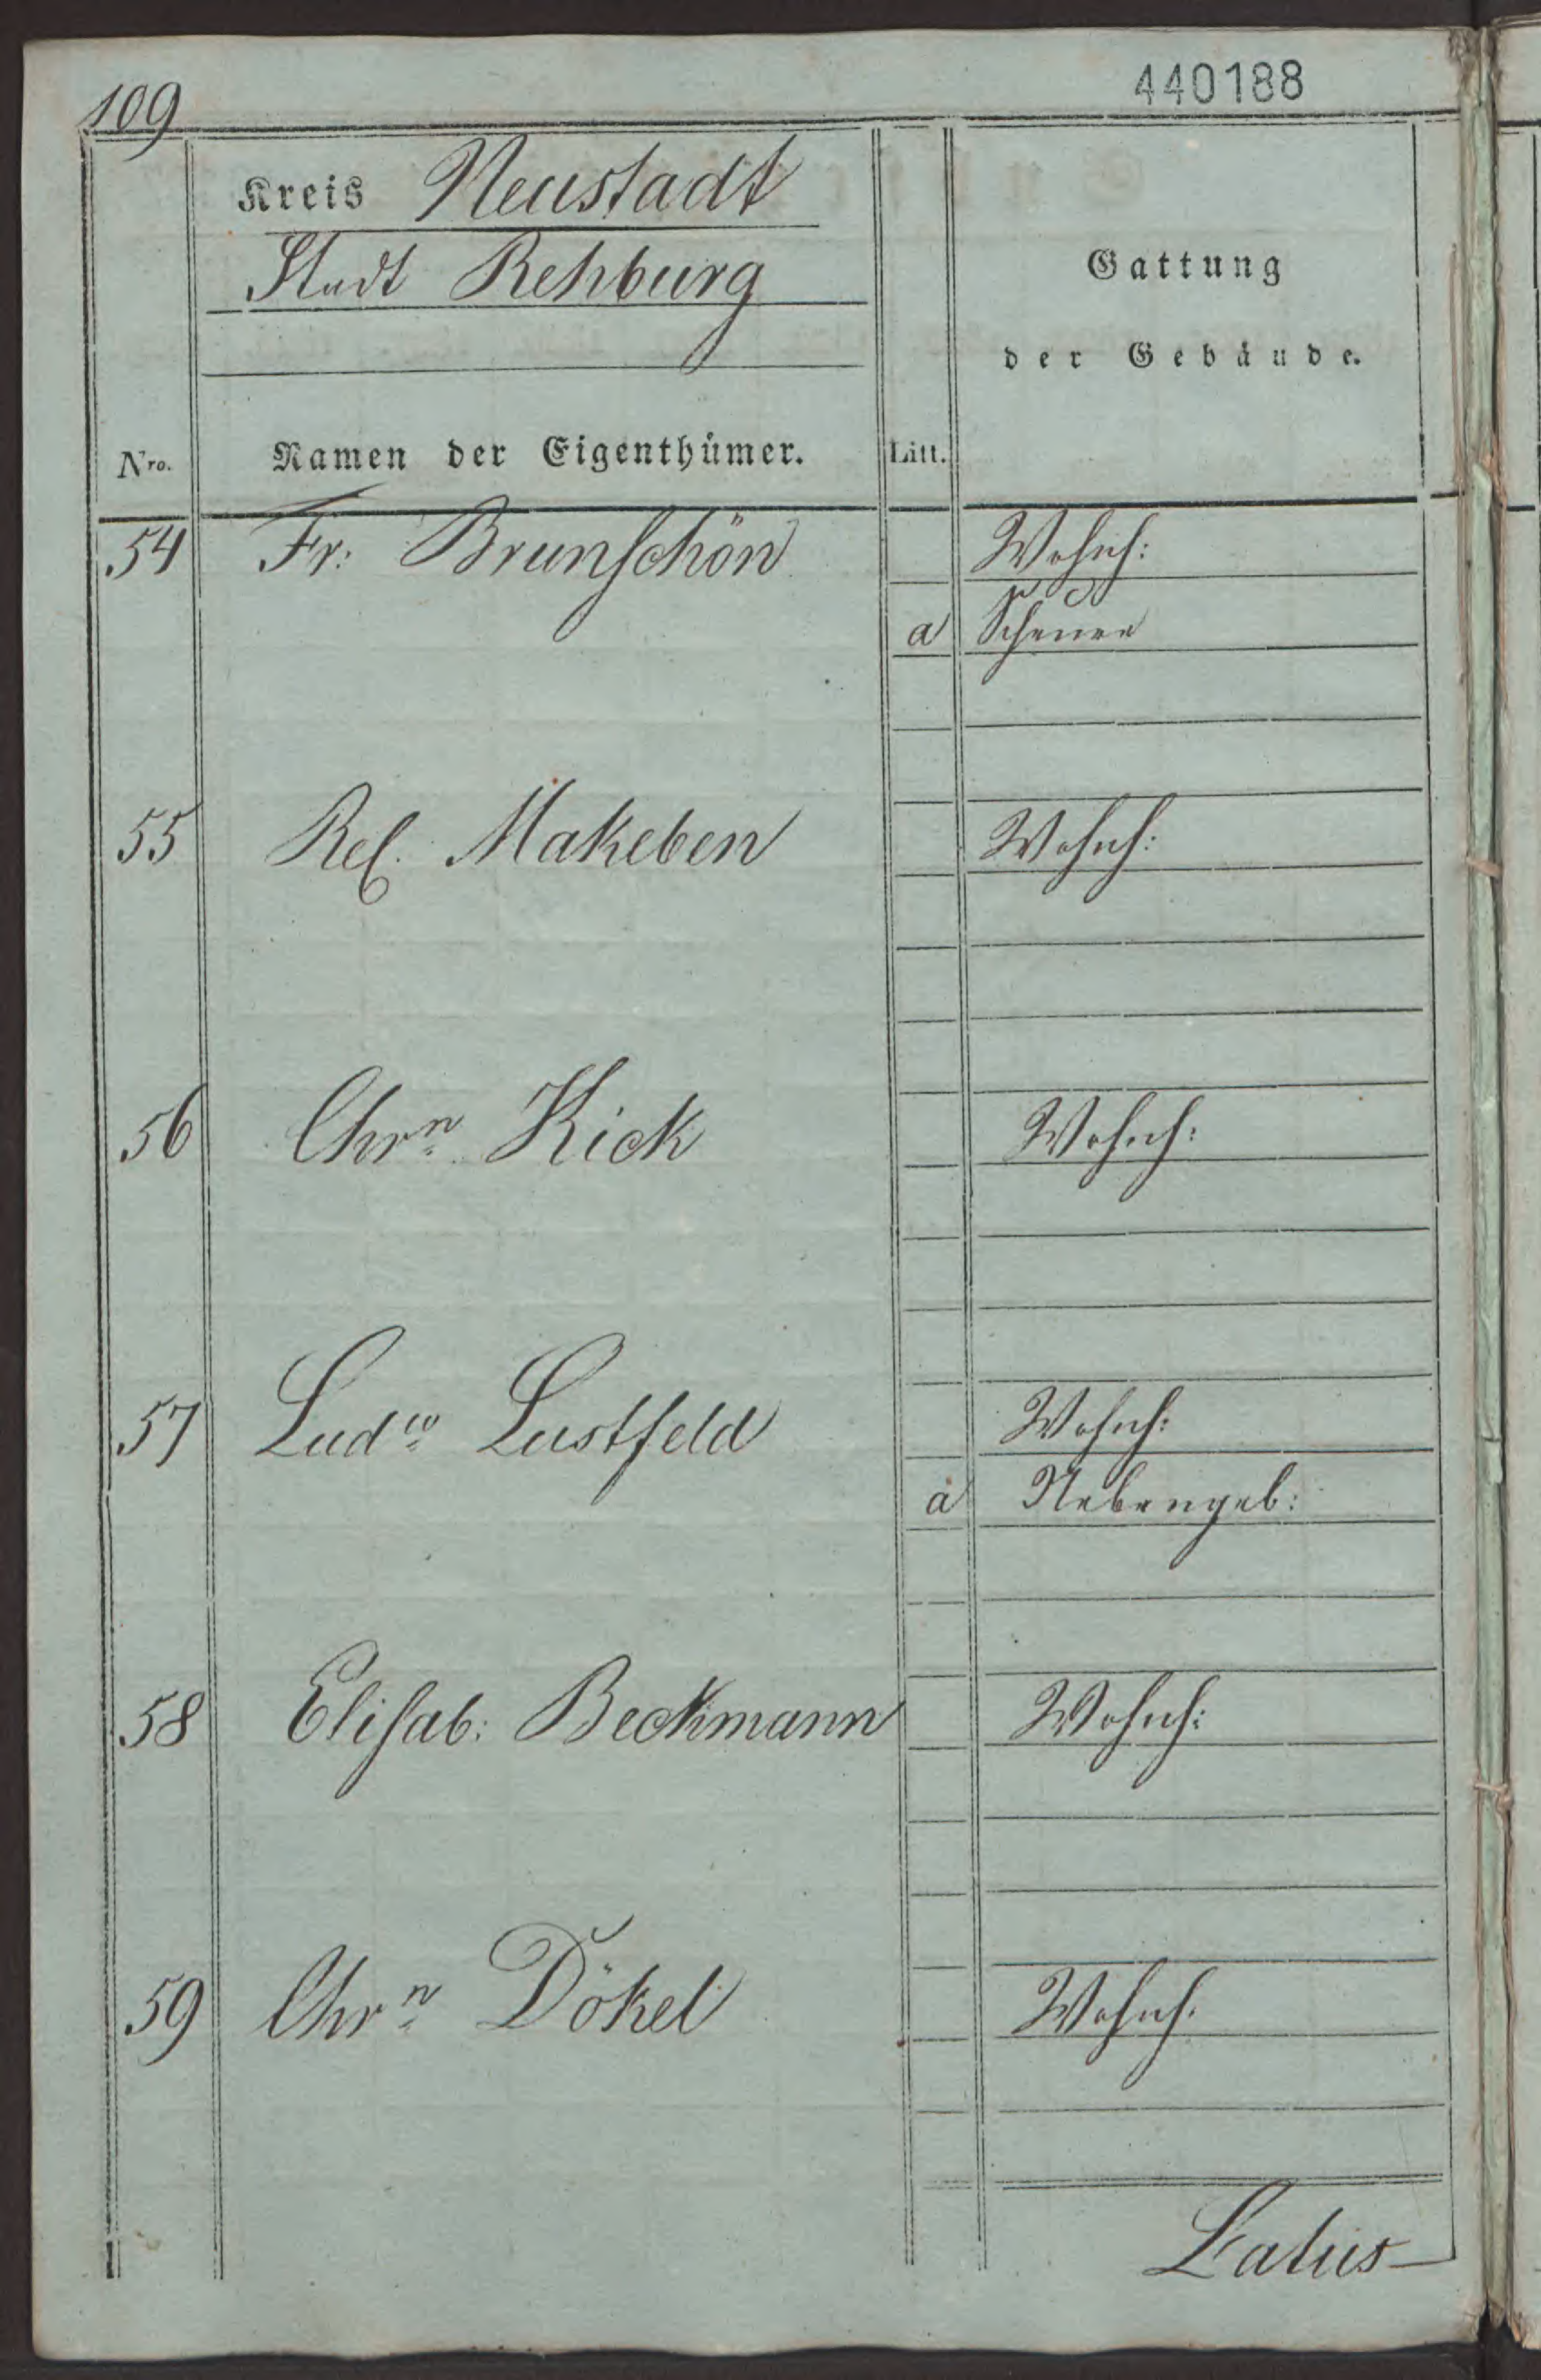 440188
109
Kreis Neustadt
Stadt Rehburg
Gattung
der Gebäude.
Nro. Namen der Eigenthümer. Litt.
54 Fr: Brunschön Wohnh:
a Scheune
55 Rel. Makeben Wohnh:
56 Chrn Kick Wohnh:
57 Ludw Lustfeld Wohnh:
a Nebengeb:
58 Elisab: Beckmann Wohnh:
59 Chrn Dökel Wohnh.
Latus